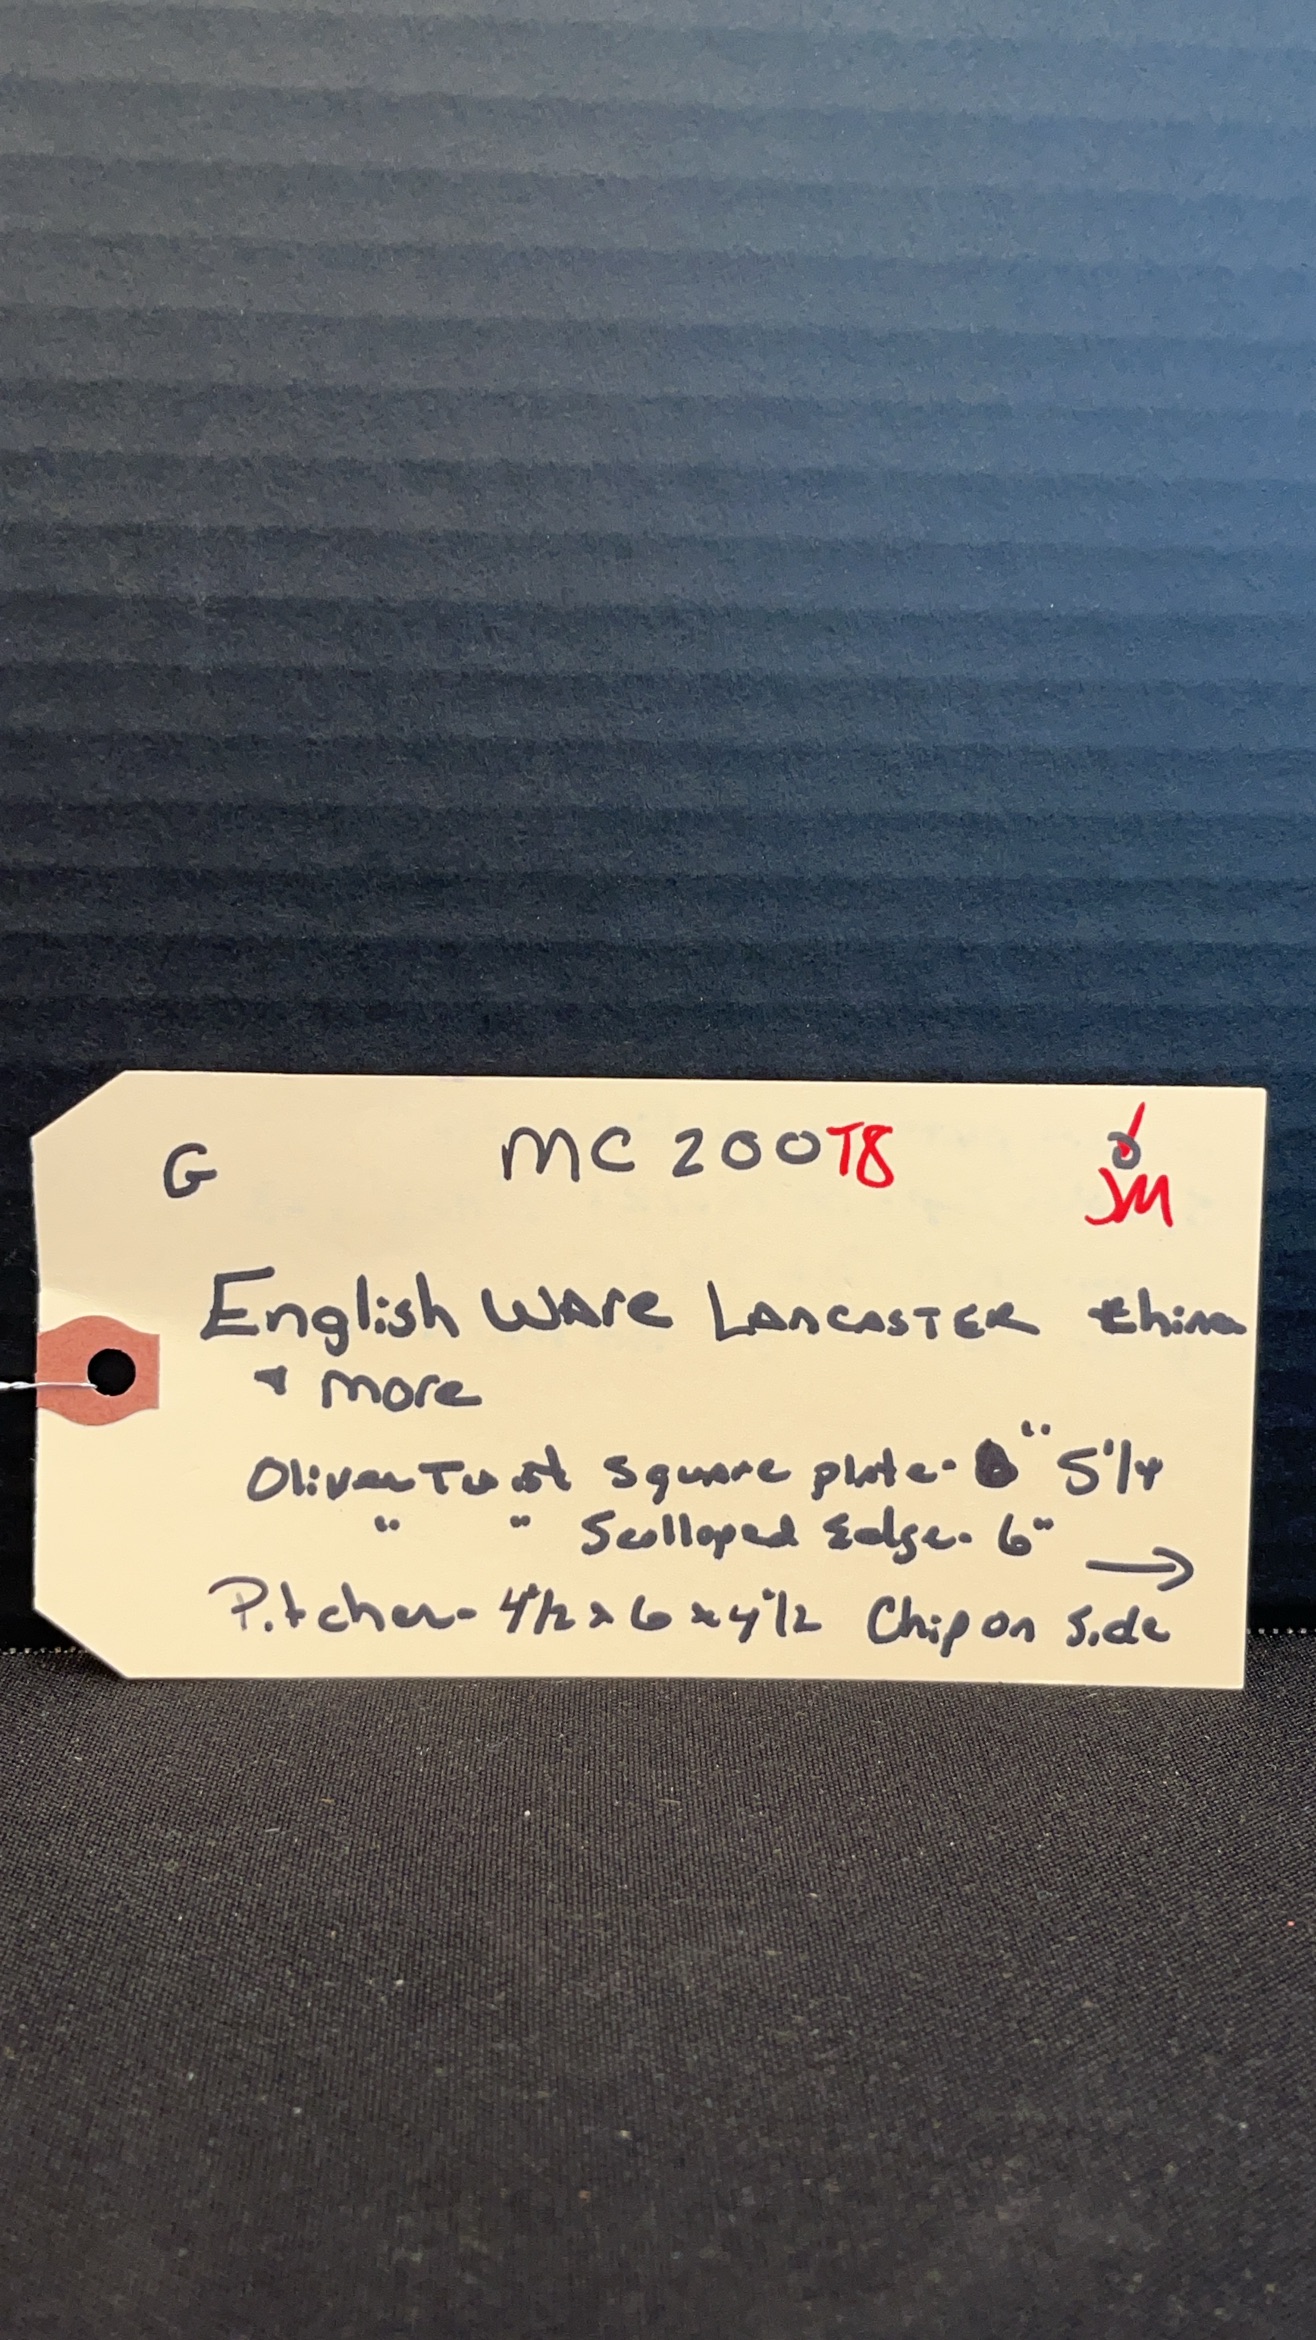 G MC 200T8 JM
English Ware LANCASTER china
+ more
Oliver Twist Square plate- " 5 1/4
" " Scolloped Edge- 6" →
Pitcher- 4 1/2 x 6 x 4 1/2 Chip on Side